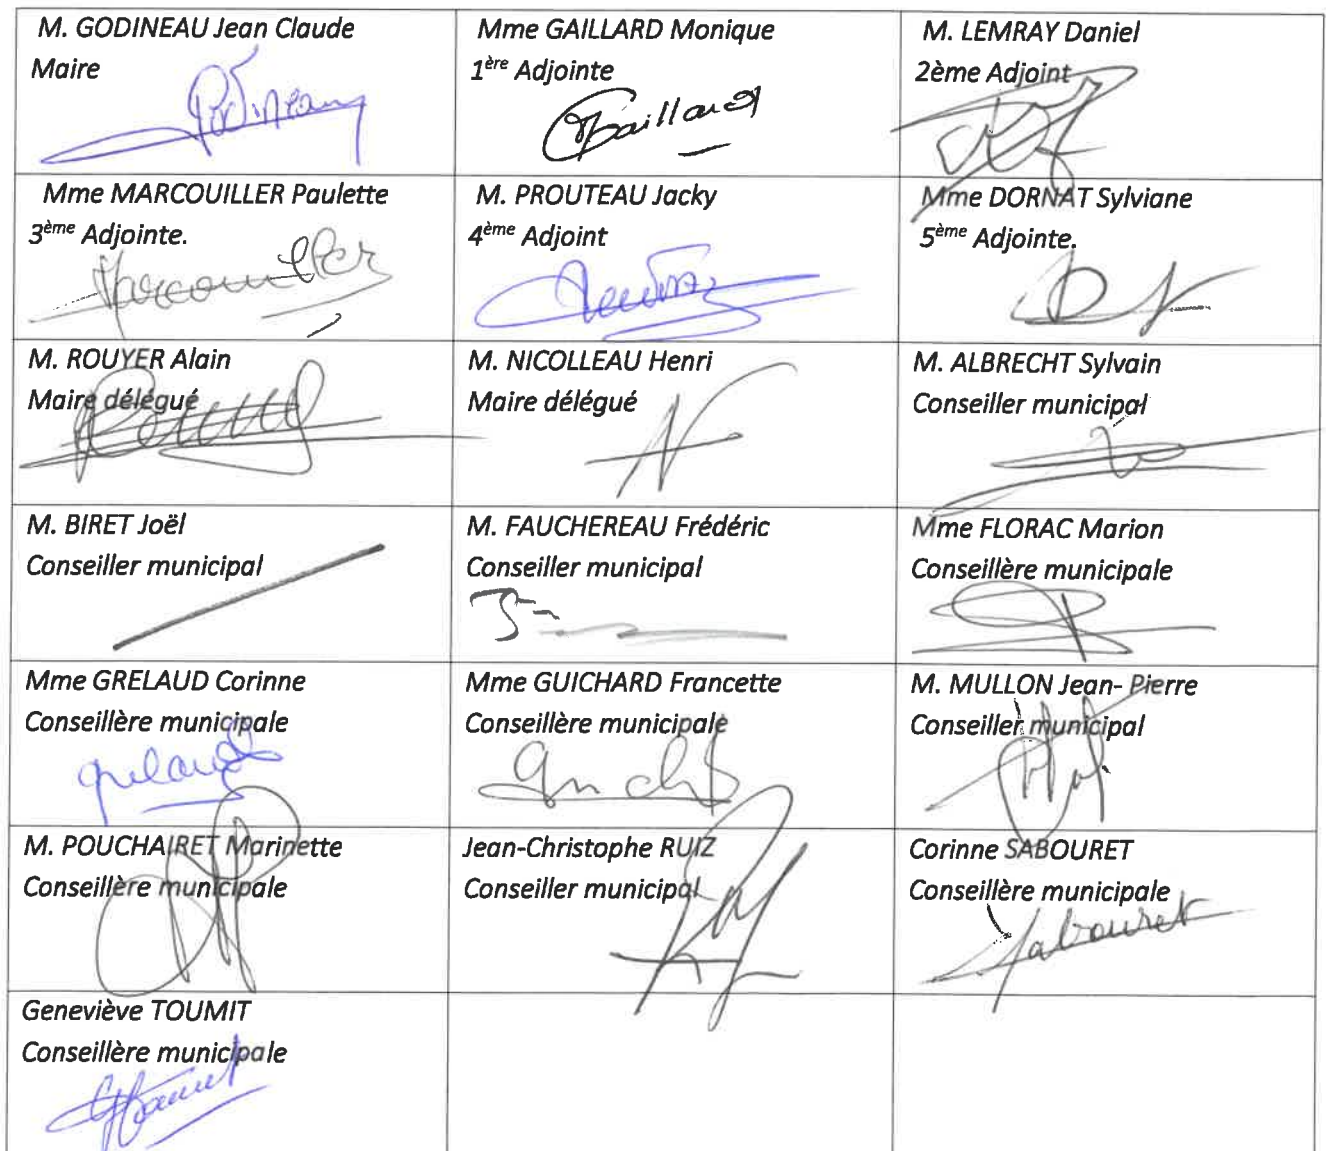 M. GODINEAU Jean Claude
Maire
Godineau
Mme GAILLARD Monique
1ère Adjointe
Gaillard
M. LEMRAY Daniel
2ème Adjoint
Mme MARCOUILLER Paulette
3ème Adjointe.
Marcouiller
M. PROUTEAU Jacky
4ème Adjoint
Mme DORNAT Sylviane
5ème Adjointe.
M. ROUYER Alain
Maire délégué
M. NICOLLEAU Henri
Maire délégué
M. ALBRECHT Sylvain
Conseiller municipal
M. BIRET Joël
Conseiller municipal
M. FAUCHEREAU Frédéric
Conseiller municipal
Mme FLORAC Marion
Conseillère municipale
Mme GRELAUD Corinne
Conseillère municipale
grelaud
Mme GUICHARD Francette
Conseillère municipale
M. MULLON Jean- Pierre
Conseiller municipal
M. POUCHAIRET Marinette
Conseillère municipale
Jean-Christophe RUIZ
Conseiller municipal
Corinne SABOURET
Conseillère municipale
Sabouret
Geneviève TOUMIT
Conseillère municipale